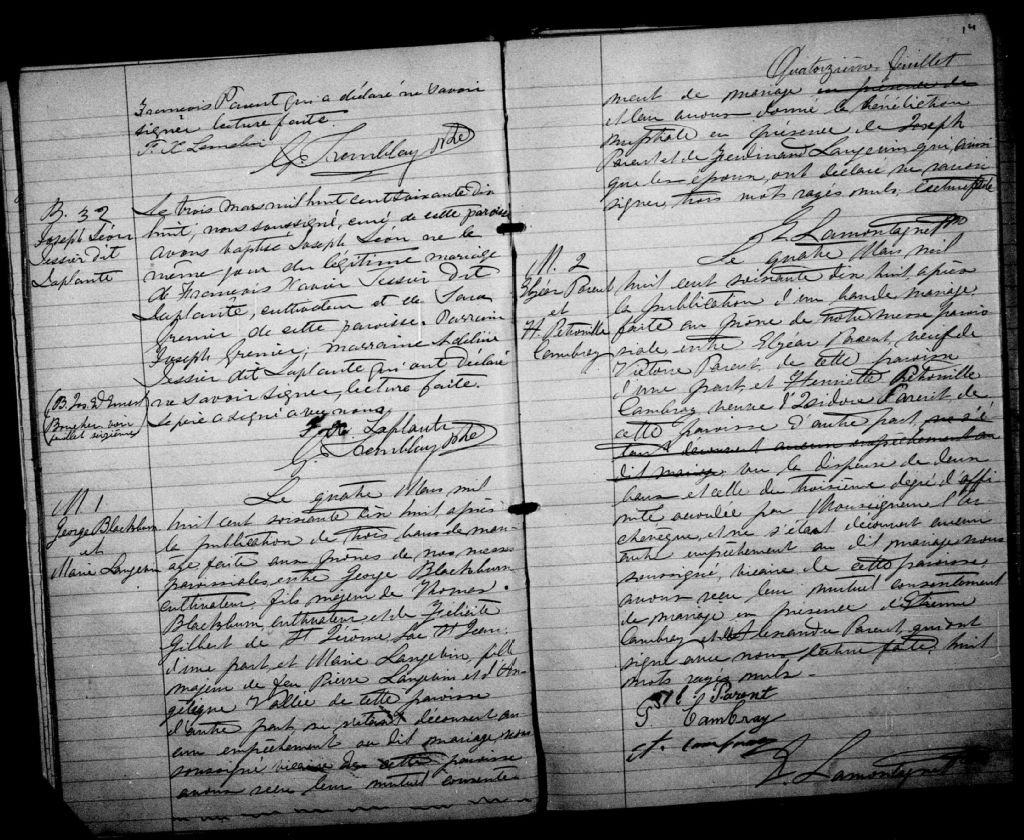 François Parent qui a déclaré ne savoir
signer lecture faite.
G. Tremblay Ptre
B. 32
Joseph Léon
Tessier dit
Laplante
Le trois Mars mil huit cent soixante dix
huit, nous soussigné, curé de cette paroisse
avons baptisé Joseph Léon né le
même jour du légitime mariage
de François Xavier Tessier dit
Laplante, cultivateur et de Sara
Grenier de cette paroisse. Parrain
Joseph Grenier, marraine Adeline
Tessier dit Laplante qui ont déclaré
ne savoir signer, lecture faite.
Le père a signé avec nous.
(B. Jos. Ernest
Boucher voir
feuillet onzième)
F. X. Laplante
G. Tremblay Ptre
M 1
George Blackburn
et
Marie Langevin
Le quatre Mars mil
huit cent soixante dix huit après
la publication de trois bans de mari-
age, faite aux prônes de nos messes
paroissiales, entre George Blackburn
cultivateur, fils majeur de Thomas
Blackburn, cultivateur et de Félicité
Gilbert de St Jérôme Lac St Jean
d'une part, et Marie Langevin, fille
majeure de feu Pierre Langevin et d'An-
gélique Vallée de cette paroisse
d'autre part, ne s'étant découvert au
cun empêchement au dit mariage, nous
soussigné vicaire de cette paroisse
avons reçu leur mutuel consente-
14
Quatorzième feuillet
ment de mariage en présence de
et leur avons donné la bénédiction
nuptiale en présence de Joseph
Parent et de Ferdinand Langevin qui, ainsi
que les époux, ont déclaré ne savoir
signer, trois mots rayés nuls, lecture faite
E. Lamontagne Ptre
M. 2
Elzéar Parent
et
H. Pétronille
Cambray
Le quatre Mars mil
huit cent soixante dix huit après
la publication d'un bande mariage
faite au prône de notre messe parois
siale, entre Elzéar Parent, veuf de
Victoire Parent, de cette paroisse
d'une part, et Henriette Pétronille
Cambray veuve d'Isidore Parent de
cette paroisse d'autre part, ne s'é
tant découvert aucun empêchement au
dit mariage vu la dispense de deux
bans et celle du troisième degré d'affi
nité accordée par Monseigneur l'Ar
chevêque, et ne s'étant découvert aucun
autre empêchement au dit mariage nous
soussigné, vicaire de cette paroisse,
avons reçu leur mutuel consentement
de mariage en présence d'Etienne
Cambray et d'Alexandre Parent qui ont
signé avec nous lecture faite huit
mots rayés nuls.
Parent
Cambray
E. Lamontagne Ptre